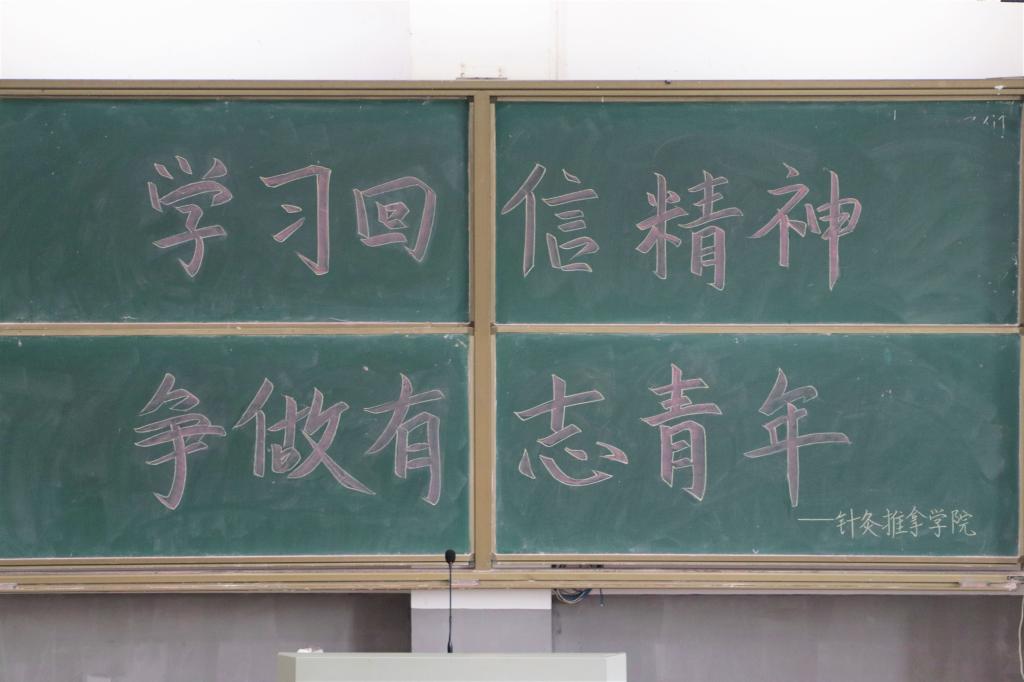 学习回信精神
争做有志青年
——针灸推拿学院